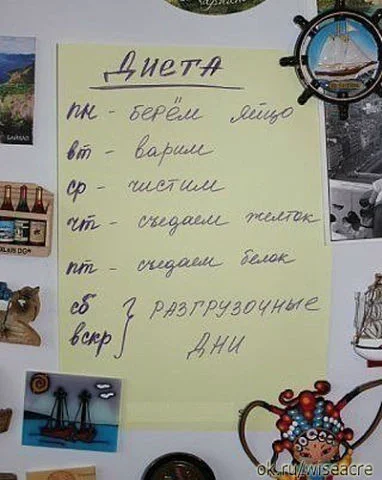 ДИЕТА
пн - берём яйцо
вт - варим
ср - чистим
чт - съедаем желток
пт - съедаем белок
сб } РАЗГРУЗОЧНЫЕ
вскр } ДНИ
БАЙКАЛ
ok.ru/wiseacre